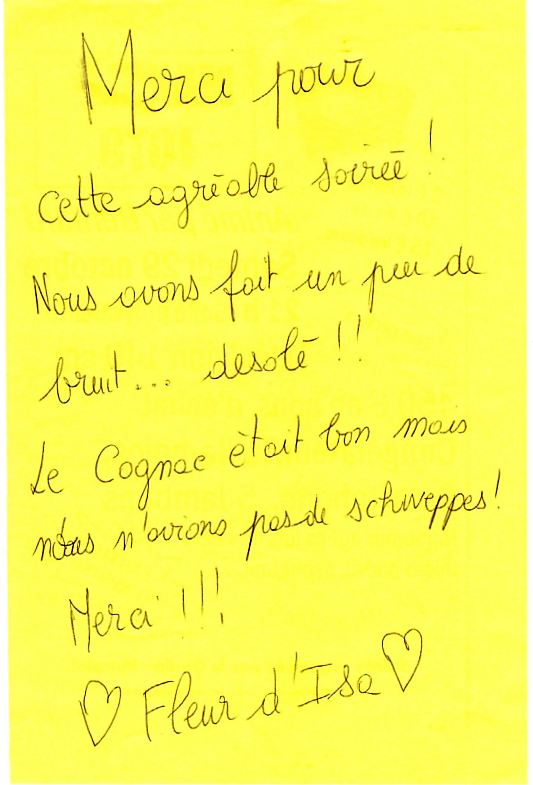 Merci pour
cette agréable soirée !
Nous avons fait un peu de
bruit... desolé !!
Le Cognac était bon mais
nous n'avions pas de schweppes!
Merci !!!
♡ Fleur d'Isa ♡